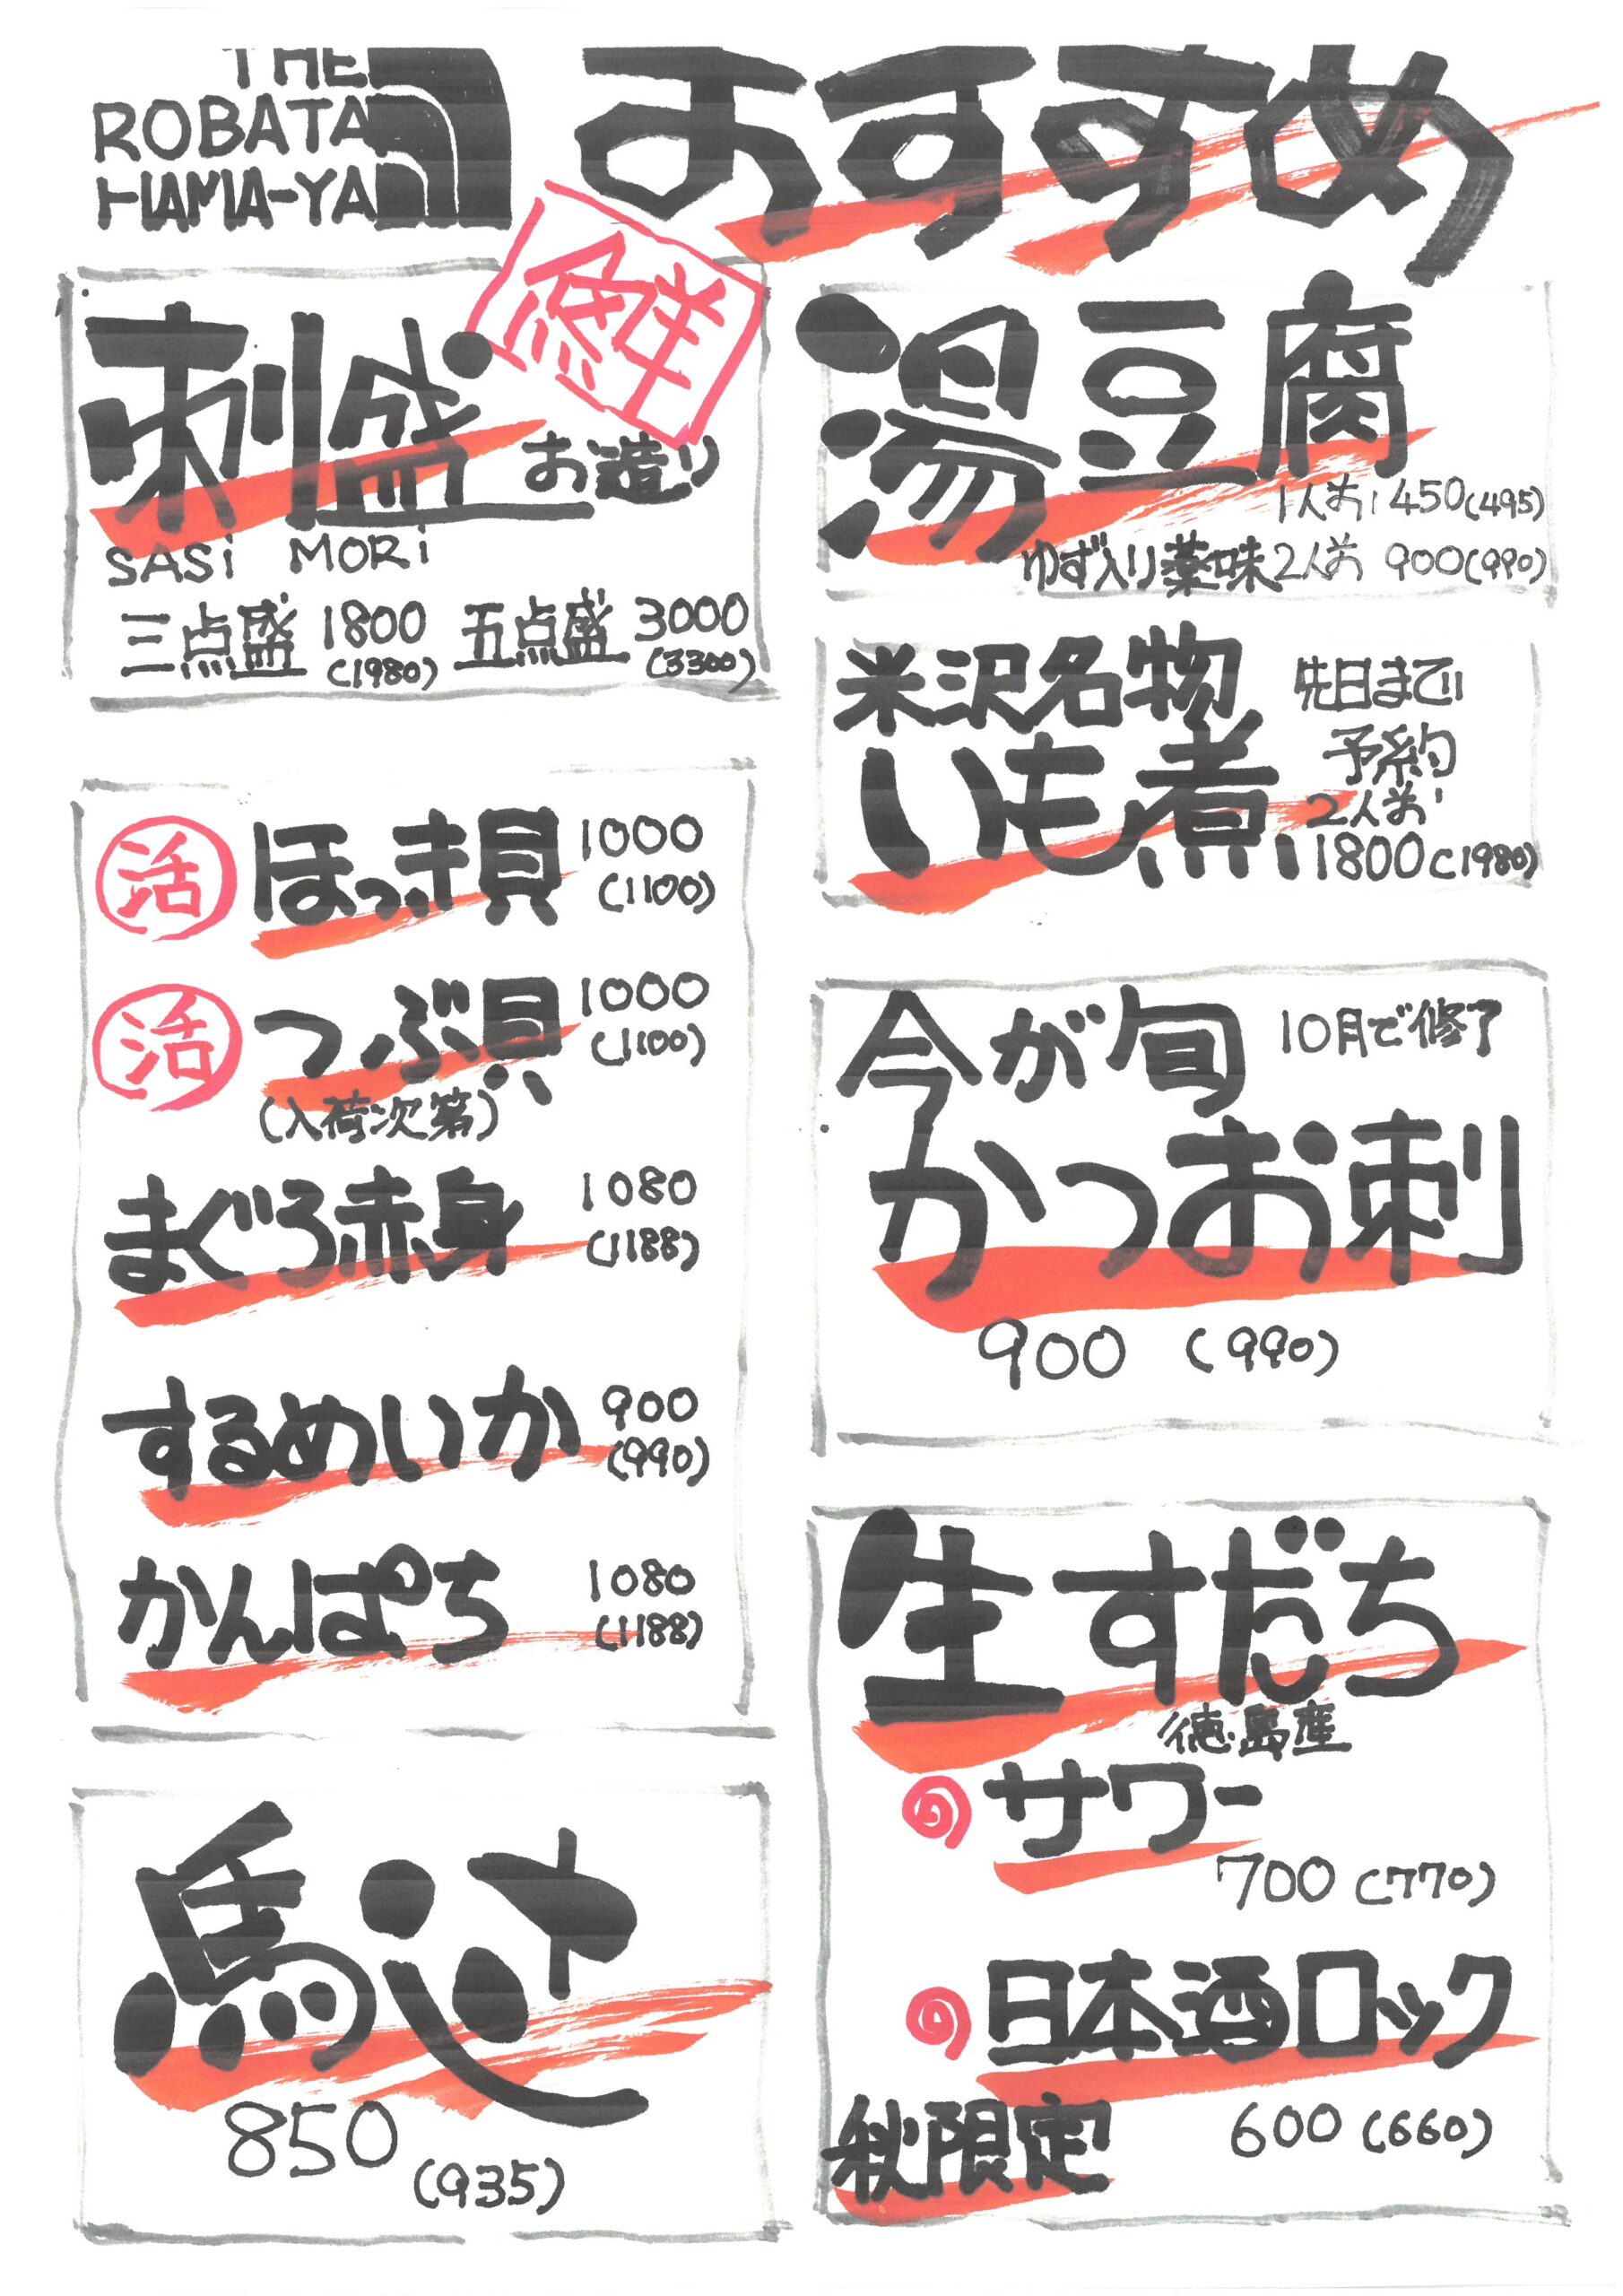 THE
ROBATA
HAMA-YA
おすすめ
鮮
刺盛
お造り
SASi MORi
三点盛 1800 五点盛 3000
(1980) (3300)
活 ほっき貝 1000
(1100)
活 つぶ貝 1000
(1100)
(入荷次第)
まぐろ赤身 1080
(1188)
するめいか 900
(990)
かんぱち 1080
(1188)
馬込
850
(935)
湯豆腐
1人前 450(495)
ゆず入り薬味 2人前 900(990)
米沢名物 先日まで
いも煮 予約
2人前
1800(1980)
今が旬 10月で修了
かつお刺
900 (990)
生すだち
徳島産
の サワー
700 (770)
の 日本酒ロック
秋限定 600 (660)